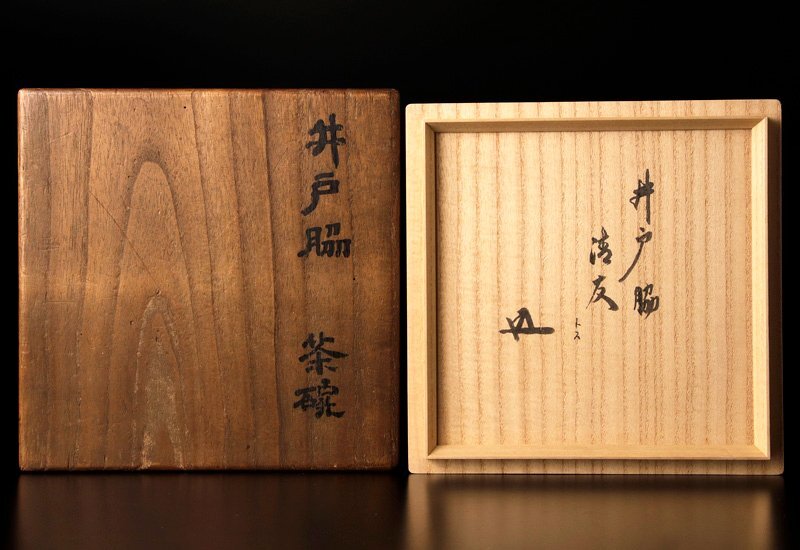 井戸脇 茶碗
井戸脇
清友
トス